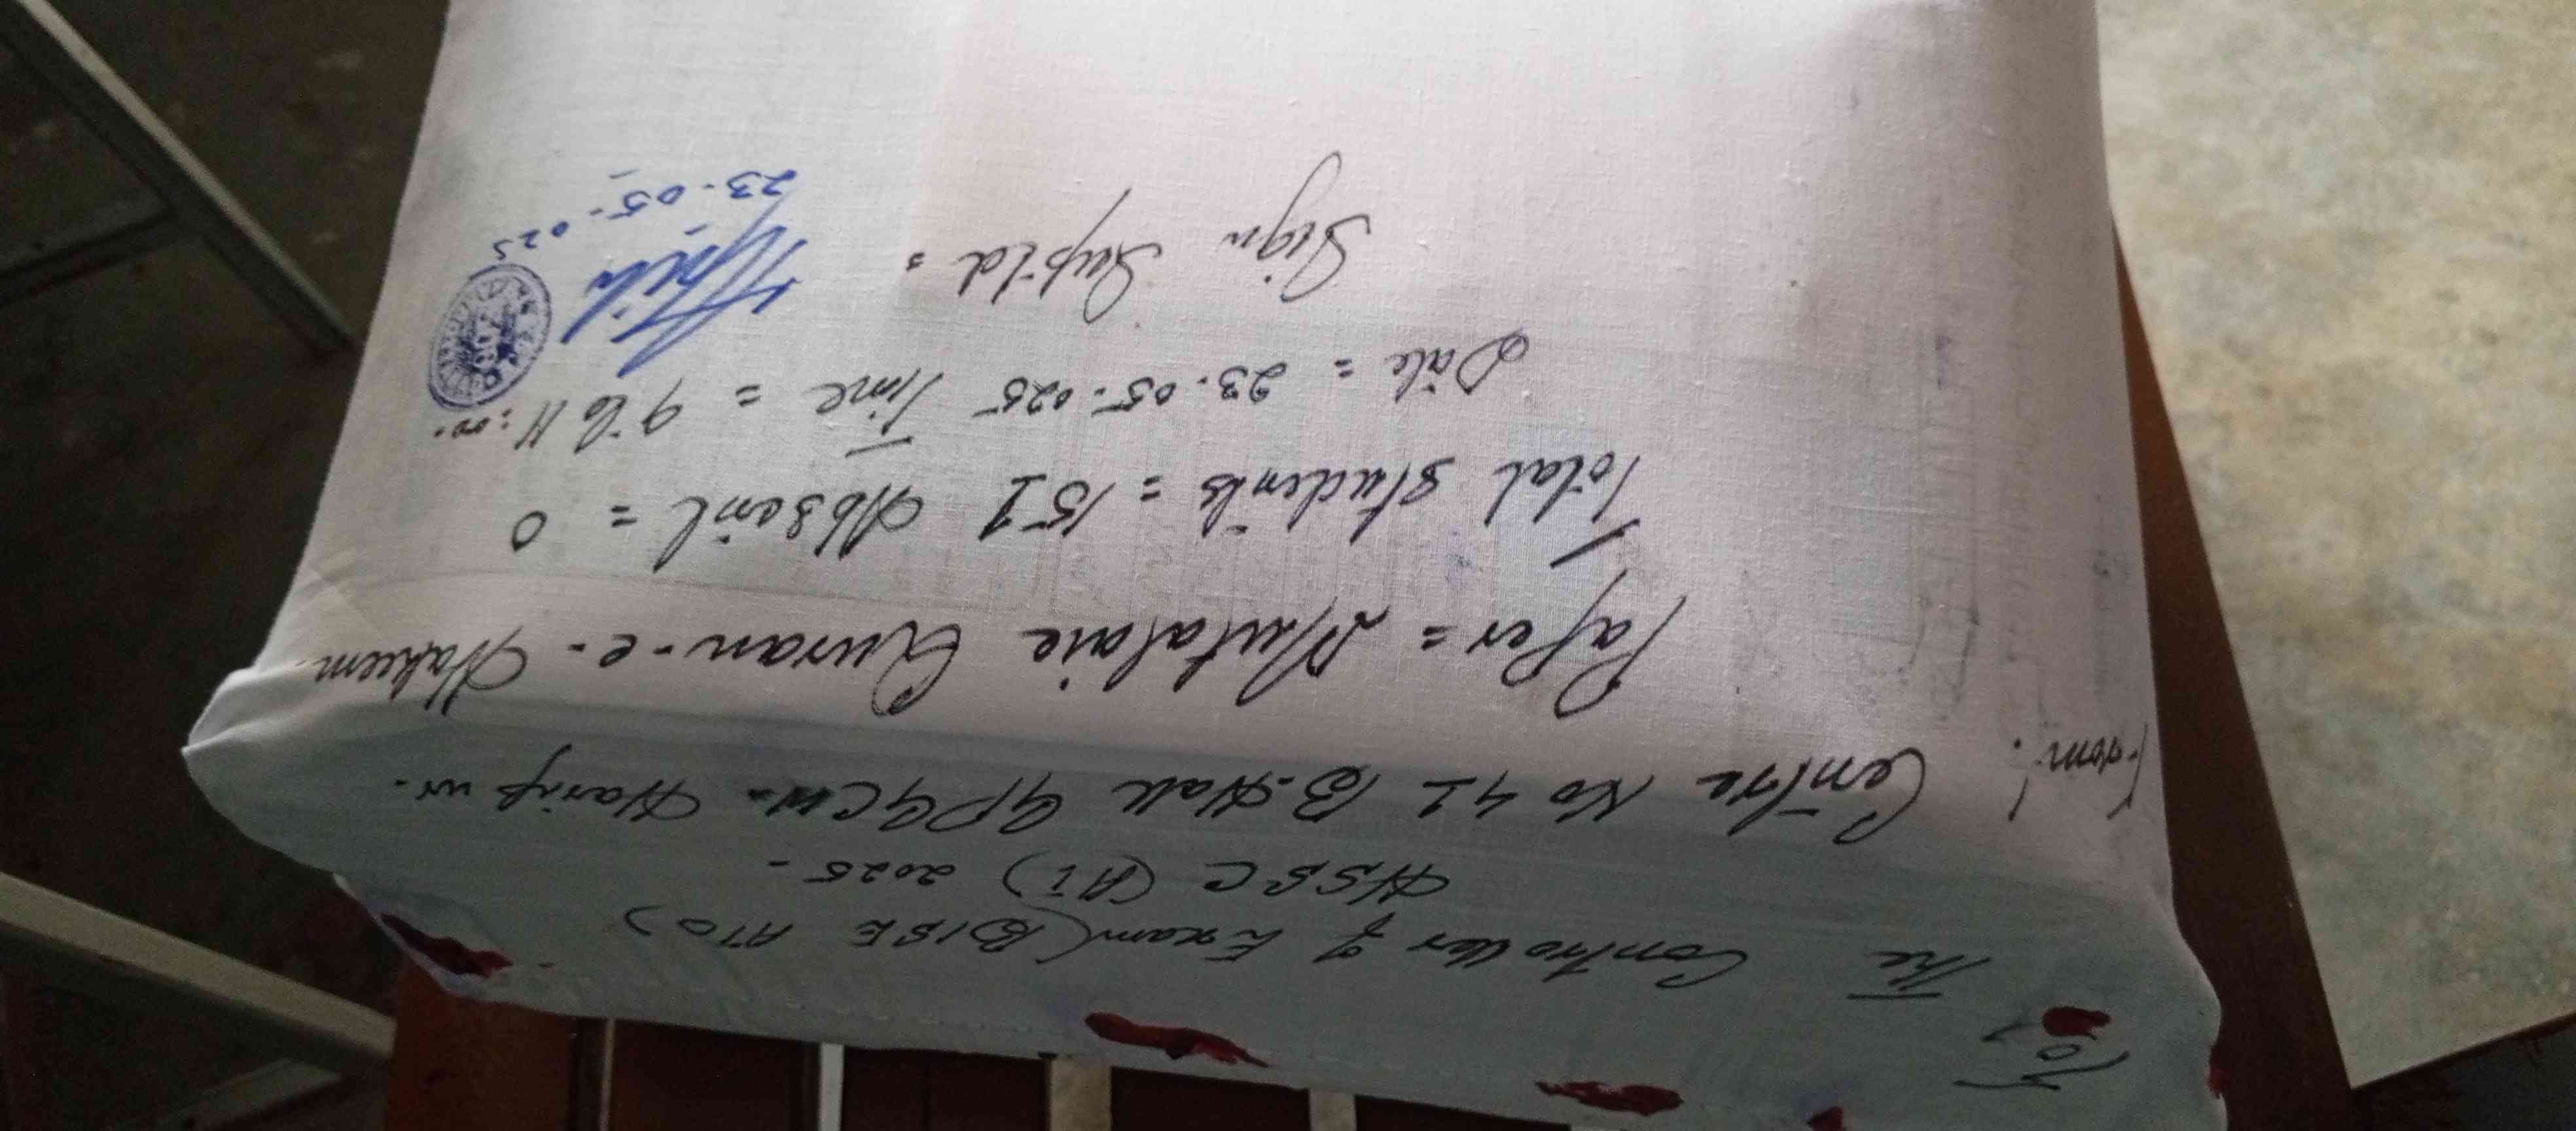 To,
The Controller of Exam (BISE ATD)
HSSC (AI) 2025-
From: Centre No 41 B-Hall GPGCW- Haripur.
Paper = Mutalaie Quran-e-Hakeem
Total students = 151 Absent = 0
Date = 23.05.025 Time = 9 to 11:00.
Sign Suptd =
23.05.025